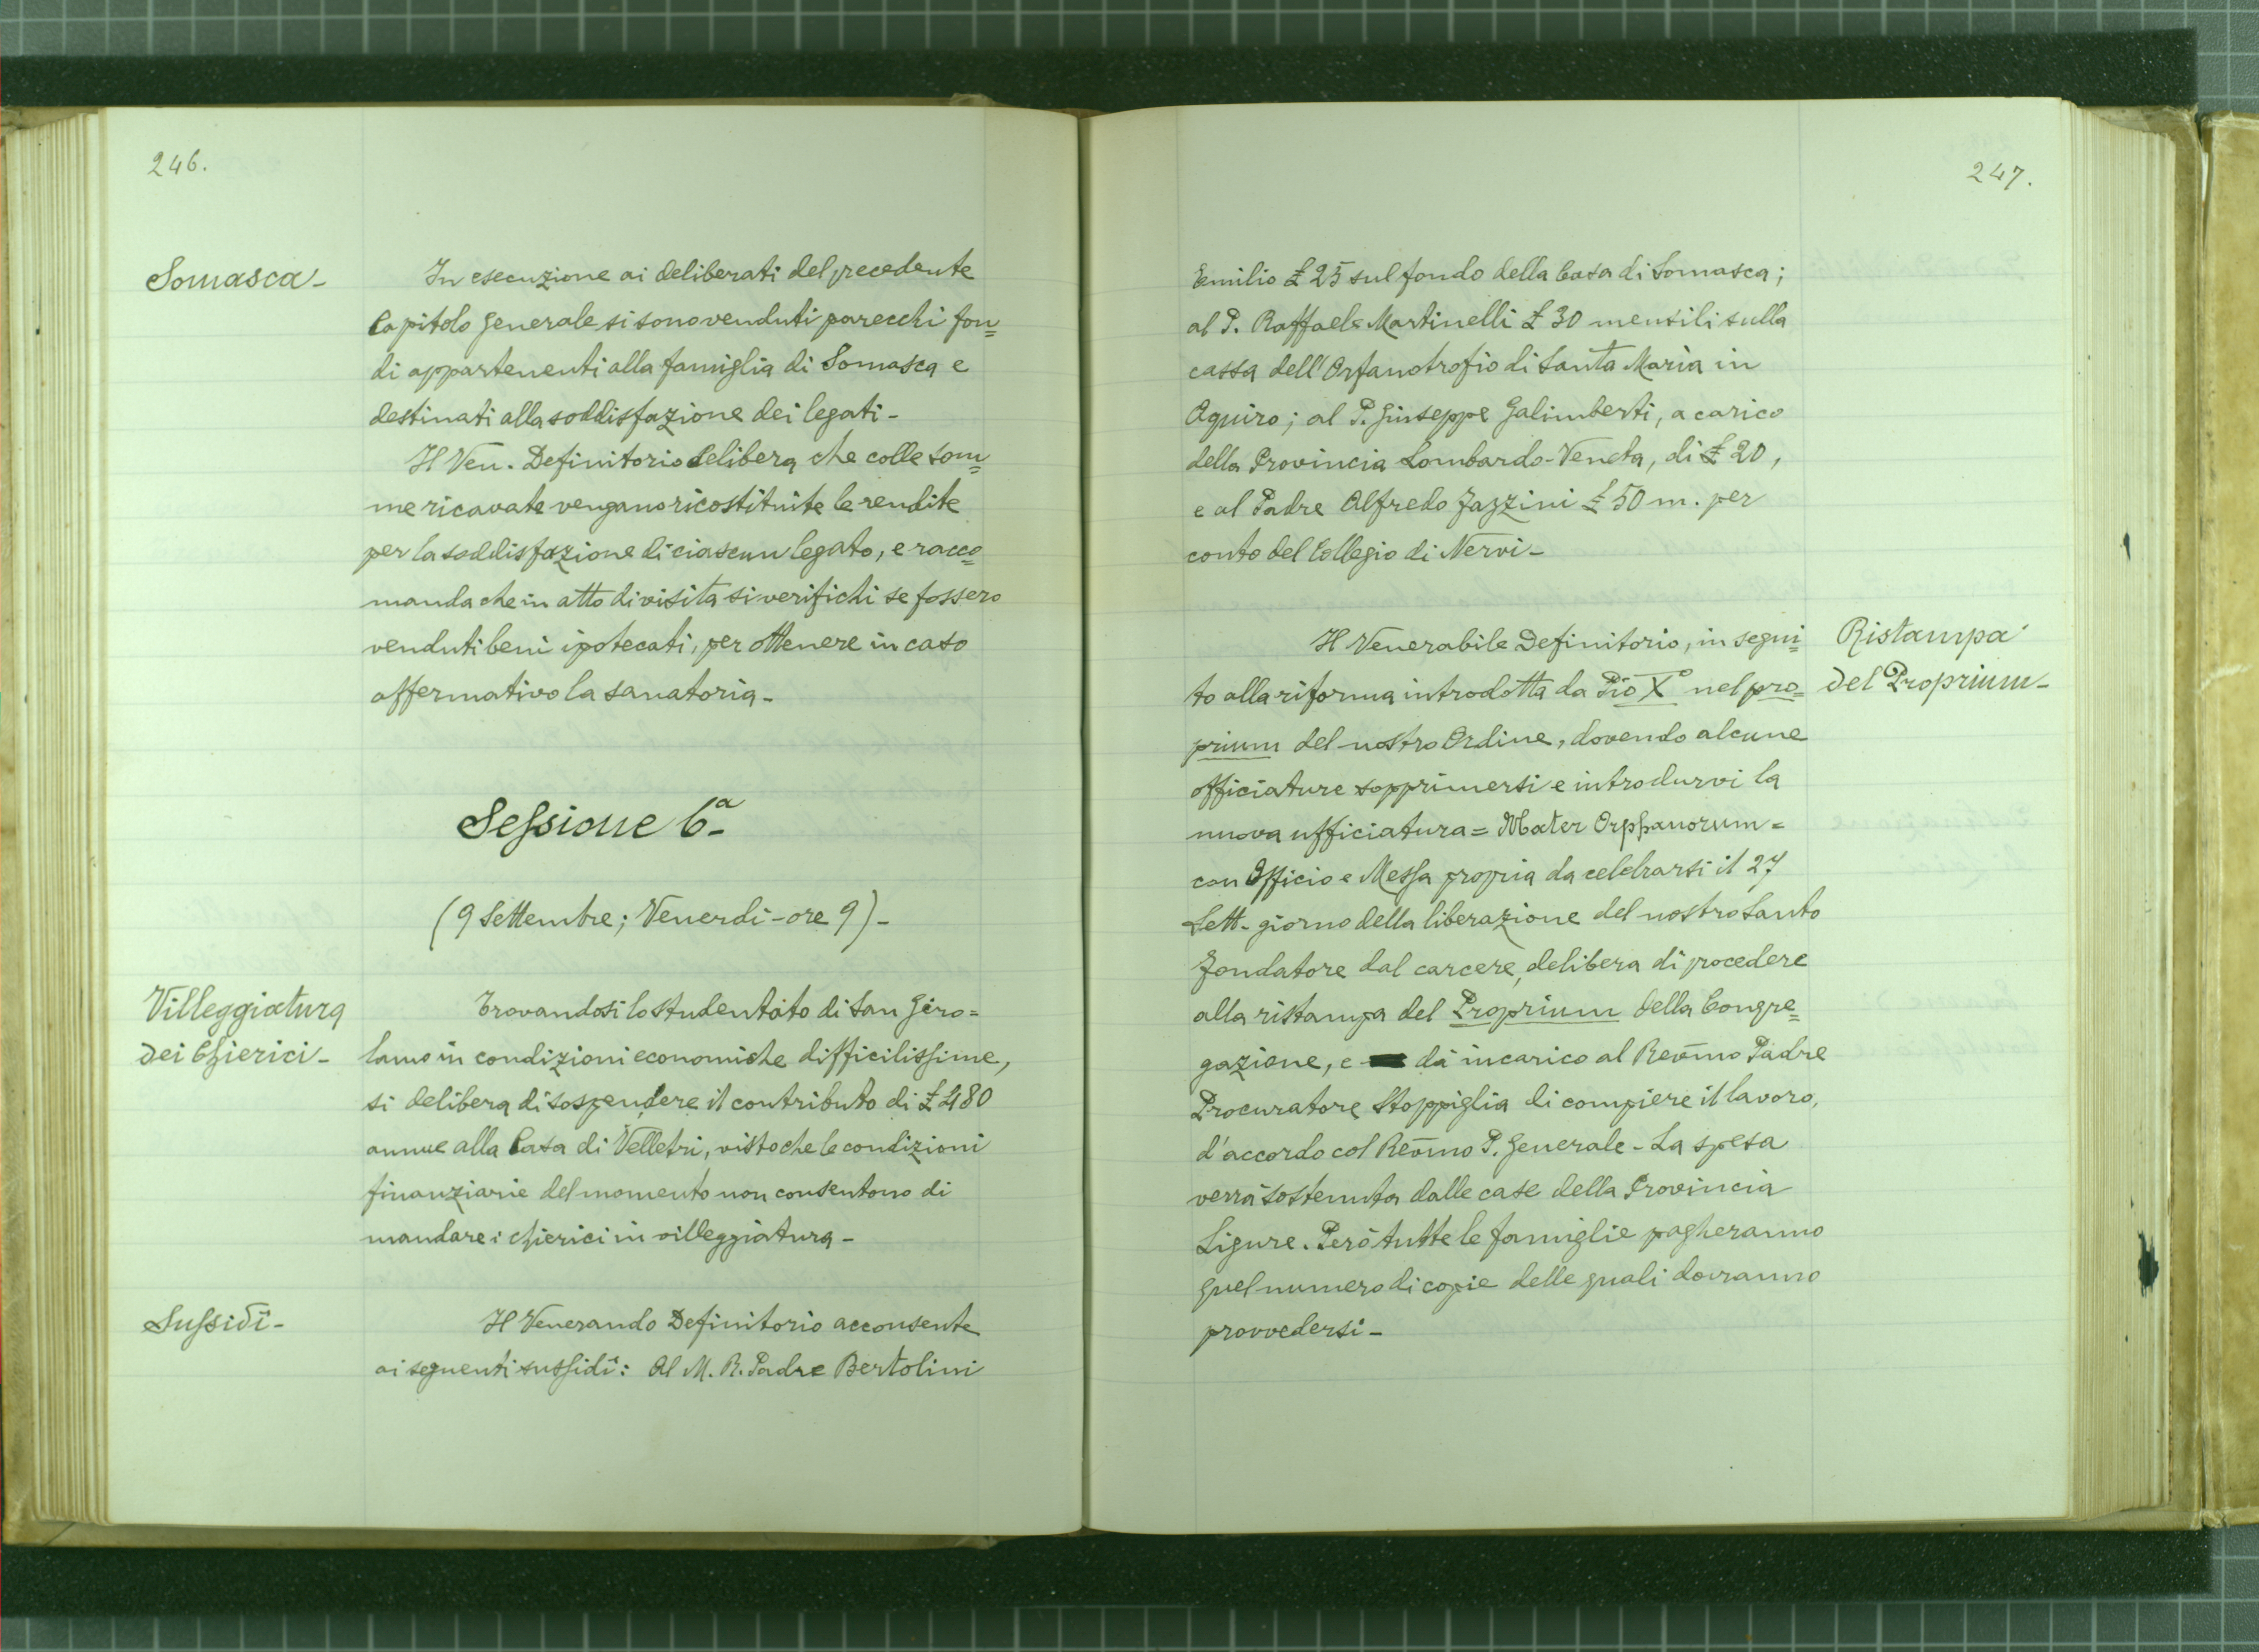 246.
Somasca-
In esecuzione ai deliberati del precedente
Capitolo Generale si sono venduti parecchi fon=
di appartenenti alla famiglia di Somasca e
destinati alla soddisfazione dei legati-
Il Ven. Definitorio delibera che colle som=
me ricavate vengano ricostituite le rendite
per la soddisfazione di ciascun legato, e racco=
manda che in atto di visita si verifichi se fossero
venduti beni ipotecati, per ottenere in caso
affermativo la sanatoria-
Sessione 6a-
(9 Settembre; Venerdì-ore 9)-
Villeggiatura
dei Chierici-
Trovandosi lo studentato di San Giro=
lamo in condizioni economiche difficilissime,
si delibera di sospendere il contributo di £ 480
annue alla Casa di Velletri, visto che le condizioni
finanziarie del momento non consentono di
mandare i chierici in villeggiatura-
Sussidî-
Il Venerando Definitorio acconsente
ai seguenti sussidî: Al M. R. Padre Bertolini
247.
Emilio £ 25 sul fondo della Casa di Somasca;
al P. Raffaele Martinelli £ 30 mensili sulla
cassa dell'Orfanotrofio di Santa Maria in
Aquiro; al P. Giuseppe Galimberti, a carico
della Provincia Lombardo-Veneta, di £ 20,
e al Padre Alfredo Fazzini £ 50 m. per
conto del Collegio di Nervi-
Ristampa
del Proprium-
Il Venerabile Definitorio, in segui=
to alla riforma introdotta da Pio X° nel pro=
prium del nostro Ordine, dovendo alcune
officiature sopprimersi e introdurvi la
nuova ufficiatura = Mater Orphanorum =
con Officio e Messa propria da celebrarsi il 27
Sett- giorno della liberazione del nostro Santo
Fondatore dal carcere, delibera di procedere
alla ristampa del Proprium della Congre=
gazione, e dà incarico al Rev̄mo Padre
Procuratore Stoppiglia di compiere il lavoro,
d'accordo col Rev̄mo P. Generale- La spesa
verrà sostenuta dalle case della Provincia
Ligure. Però tutte le famiglie pagheranno
quel numero di copie delle quali dovranno
provvedersi-